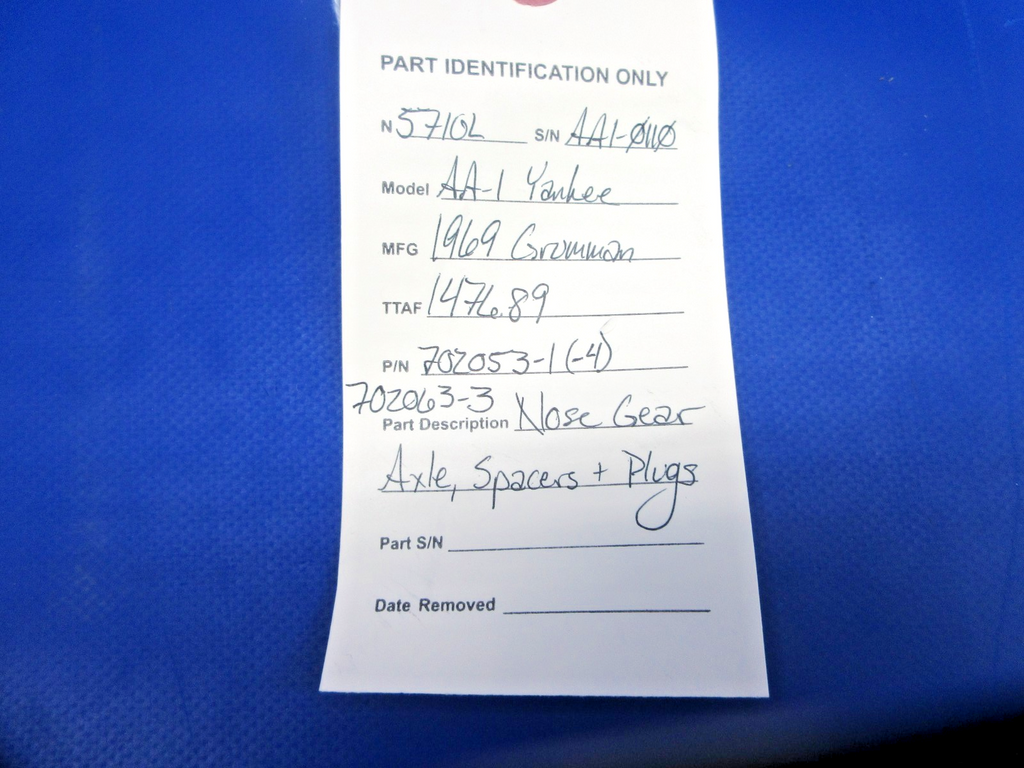 PART IDENTIFICATION ONLY
N 5710L S/N AA1-0110
Model AA-1 Yankee
MFG 1969 Grumman
TTAF 1476.89
P/N 702053-1 (-4)
702063-3
Part Description Nose Gear
Axle, Spacers + Plugs
Part S/N
Date Removed